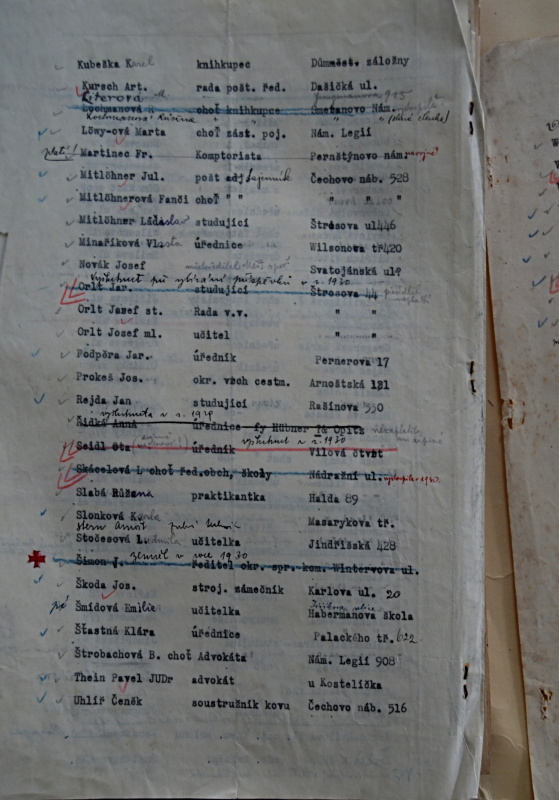 Kubežka Karel knihkupec Důmměst. záložny
Kursch Art. rada pošt. řed. Dašická ul.
Lochmanová knihkupce Smetanovo Nám.
Löwy-ová Marta choť zást. poj. Nám. Legií
Martinec Fr. Komptorista Pernštýnovo nám.
Mitlöhner Jul. pošt adj tajemník Čechovo náb. 528
Mitlöhnerová Fanči choť " " " " "
Mitlöhner Ládislav studující Štrosova ul 446
Minaříková Vlasta úřednice Wilsonova tř 420
Novák Josef Svatojánská ul
Vyškrtnut při vybírání příspěvků v r. 1930
Orlt Jar. studující Štrosova 44
Orlt Josef st. Rada v.v. " "
Orlt Josef ml. učitel " "
Podpěra Jar. úředník Pernerova 17
Prokeš Jos. okr. vrch cestm. Arnoštská 121
Rejda Jan studující Rašínova 550
vyškrtnuta v r. 1929
Židká Anna úřednice fy Hübner & Opitz
vyškrtnut v r. 1930
Seidl Ota úředník Vilová čtvrť
Skácelová L choť řed.obch, školy Nádražní ul. 1930.
Slabá Růžena praktikantka Halda 89
Slonková Karla Masarykova tř.
Stern Arnošt
Stočesová Ludmila učitelka Jindřišská 428
zemřel v roce 1930
Šimon J. ředitel okr. spr. kom. Winterova ul.
Škoda Jos. stroj. zámečník Karlova ul. 20
Šmídová Emilie učitelka Habermanova škola
Šťastná Klára úřednice Palackého tř. 622
Štrobachová B. choť Advokáta Nám. Legií 908
Thein Pavel JUDr advokát u Kostelíčka
Uhlíř Čeněk soustružník kovu Čechovo náb. 516